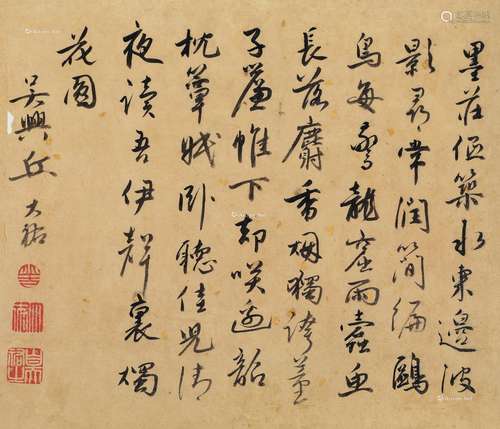 墨莊低築水東邊波
影尋常潤簡編鷗
鳥每驚龍窟雨蠹魚
長落麝香烟獨誇董
子簾帷下却笑邊韶
枕簟眠卧聽佳兒清
夜讀吾伊聲裏燭
花圓
吳興丘大祐